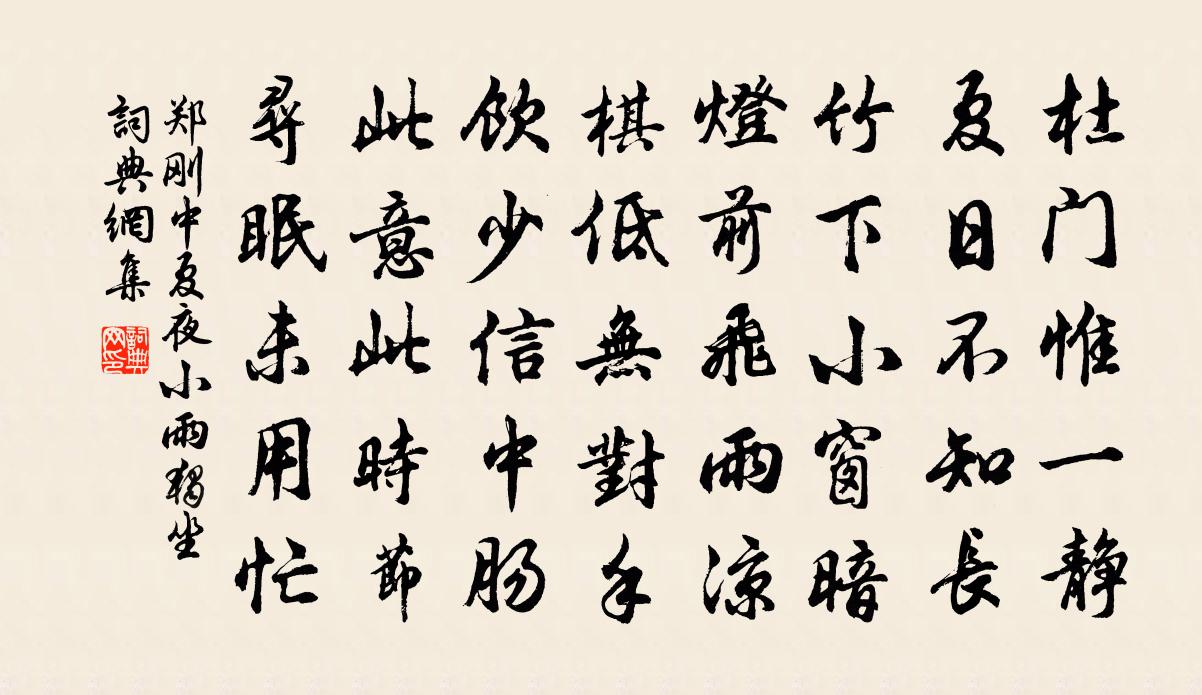 杜门惟一静
夏日不知長
竹下小窗暗
燈前飛雨凉
棋低無對手
飲少信中肠
此意此時節
尋眠未用忙
郑刚中夏夜小雨獨坐
詞典網集
詞典网印